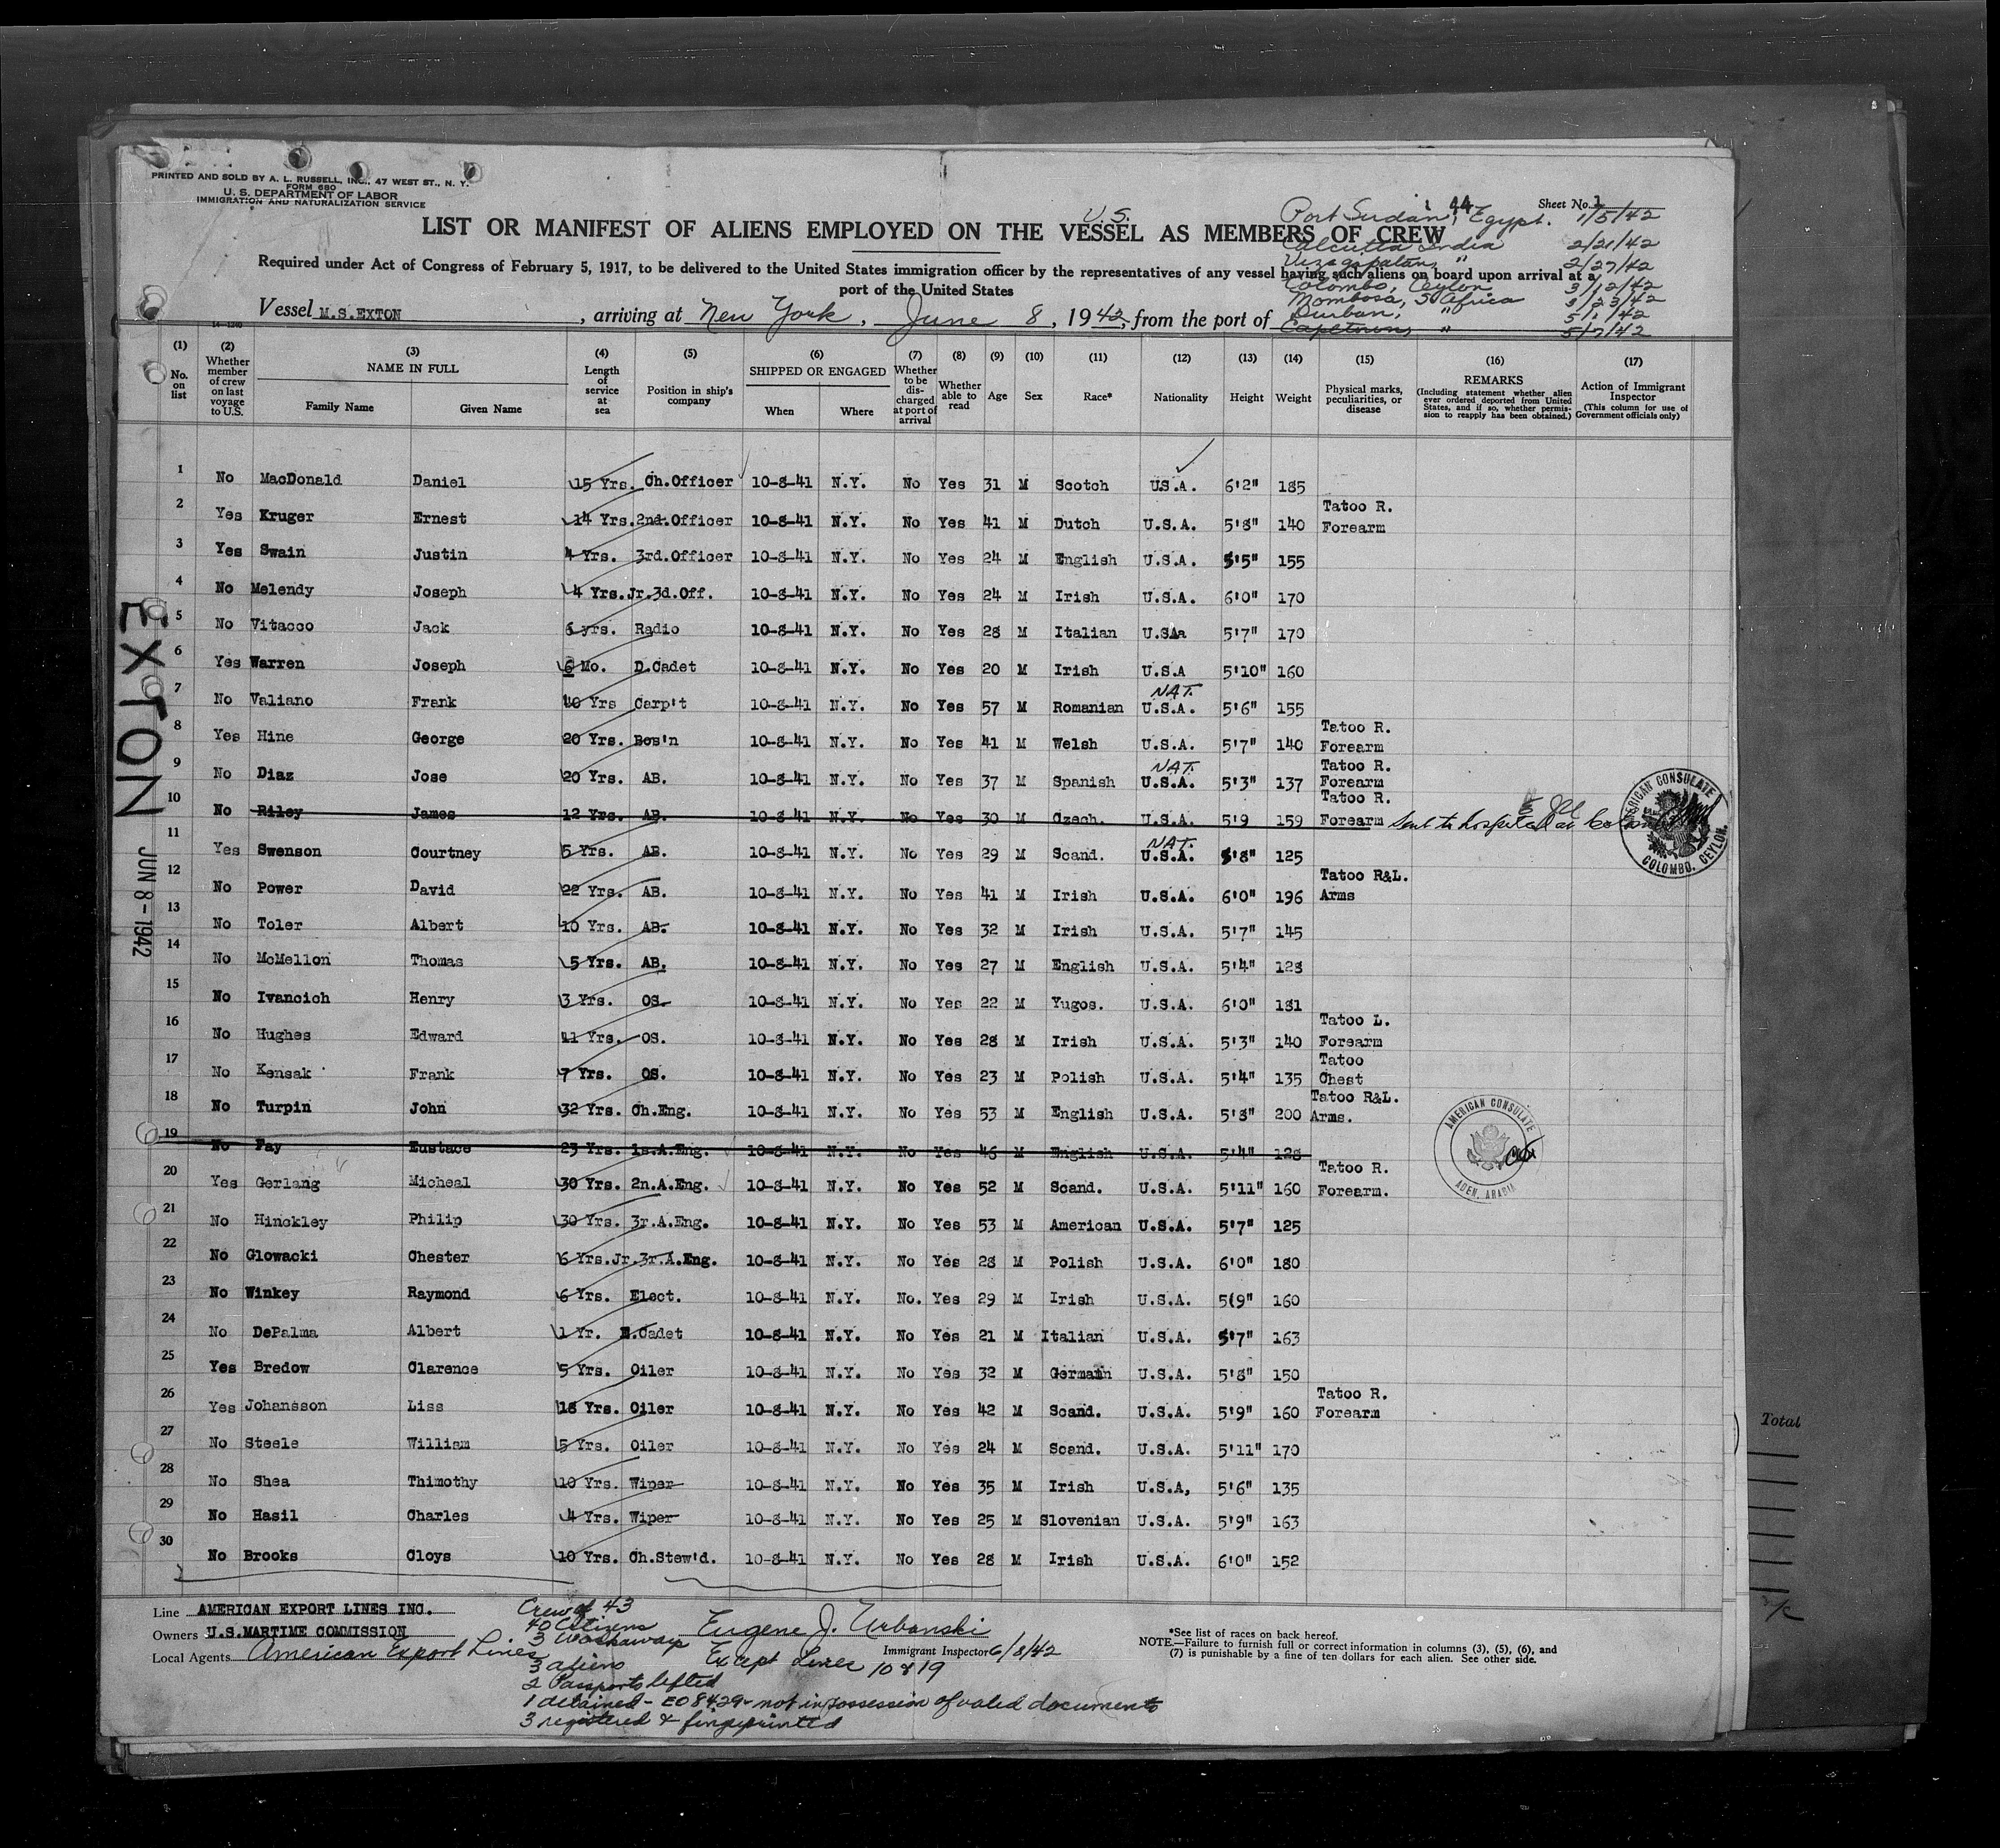 PRINTED AND SOLD BY A. L. RUSSELL, INC., 47 WEST ST., N. Y.
FORM 680
U. S. DEPARTMENT OF LABOR
IMMIGRATION AND NATURALIZATION SERVICE
44
Sheet No. 1
U.S.
LIST OR MANIFEST OF ALIENS EMPLOYED ON THE VESSEL AS MEMBERS OF CREW
Port Sudan, Egypt. 1/5/42
Calcutta India 2/21/42
Vizagipatan, " 2/27/42
Colombo, Ceylon 3/12/42
Mombosa, S Africa 3/23/42
Durban, " 5/1/42
Capetown, " 5/7/42
Required under Act of Congress of February 5, 1917, to be delivered to the United States immigration officer by the representatives of any vessel having such aliens on board upon arrival at a
port of the United States
Vessel M.S.EXTON, arriving at New York, June 8, 1942, from the port of
14-1240
(1) No. on list
(2) Whether member of crew on last voyage to U.S.
(3) NAME IN FULL Family Name Given Name
(4) Length of service at sea
(5) Position in ship's company
(6) SHIPPED OR ENGAGED When Where
(7) Whether to be discharged at port of arrival
(8) Whether able to read
(9) Age
(10) Sex
(11) Race*
(12) Nationality
(13) Height
(14) Weight
(15) Physical marks, peculiarities, or disease
(16) REMARKS (Including statement whether alien ever ordered deported from United States, and if so, whether permission to reapply has been obtained.)
(17) Action of Immigrant Inspector (This column for use of Government officials only)
1 No MacDonald Daniel 15 Yrs. Ch.Officer 10-8-41 N.Y. No Yes 31 M Scotch U.S.A. 6'2" 185
2 Yes Kruger Ernest 14 Yrs. 2nd.Officer 10-8-41 N.Y. No Yes 41 M Dutch U.S.A. 5'8" 140 Tatoo R. Forearm
3 Yes Swain Justin 4 Yrs. 3rd.Officer 10-8-41 N.Y. No Yes 24 M English U.S.A. 5'5" 155
4 No Melendy Joseph 4 Yrs. Jr.3d.Off. 10-8-41 N.Y. No Yes 24 M Irish U.S.A. 6'0" 170
5 No Vitacco Jack 6 yrs. Radio 10-8-41 N.Y. No Yes 28 M Italian U.S.Aa 5'7" 170
6 Yes Warren Joseph 6 Mo. D.Cadet 10-8-41 N.Y. No Yes 20 M Irish U.S.A 5'10" 160
7 No Valiano Frank 40 Yrs Carp't 10-8-41 N.Y. No Yes 57 M Romanian NAT. U.S.A. 5'6" 155
8 Yes Hine George 20 Yrs. Bos'n 10-8-41 N.Y. No Yes 41 M Welsh U.S.A. 5'7" 140 Tatoo R. Forearm
9 No Diaz Jose 20 Yrs. AB. 10-8-41 N.Y. No Yes 37 M Spanish NAT. U.S.A. 5'3" 137 Tatoo R. Forearm
10 No Riley James 12 Yrs. AB. 10-8-41 N.Y. No Yes 30 M Czech. U.S.A. 5'9 159 Tatoo R. Forearm Sent to hospital at
11 Yes Swenson Courtney 5 Yrs. AB. 10-8-41 N.Y. No Yes 29 M Scand. NAT. U.S.A. 5'8" 125
12 No Power David 22 Yrs. AB. 10-8-41 N.Y. No Yes 41 M Irish U.S.A. 6'0" 196 Tatoo R&L. Arms
13 No Toler Albert 10 Yrs. AB. 10-8-41 N.Y. No Yes 32 M Irish U.S.A. 5'7" 145
14 No McMellon Thomas 5 Yrs. AB. 10-8-41 N.Y. No Yes 27 M English U.S.A. 5'4" 128
15 No Ivancich Henry 3 Yrs. OS. 10-8-41 N.Y. No Yes 22 M Yugos. U.S.A. 6'0" 181
16 No Hughes Edward 11 Yrs. OS. 10-8-41 N.Y. No Yes 28 M Irish U.S.A. 5'3" 140 Tatoo L. Forearm
17 No Kensak Frank 7 Yrs. OS. 10-8-41 N.Y. No Yes 23 M Polish U.S.A. 5'4" 135 Tatoo Chest
18 No Turpin John 32 Yrs. Ch.Eng. 10-8-41 N.Y. No Yes 53 M English U.S.A. 5'8" 200 Tatoo R&L. Arms.
19 No Fay Eustace 23 Yrs. 1s.A.Eng. 10-8-41 N.Y. No Yes 46 M English U.S.A. 5'4" 128
20 Yes Gerlang Micheal 30 Yrs. 2n.A.Eng. 10-8-41 N.Y. No Yes 52 M Scand. U.S.A. 5'11" 160 Tatoo R. Forearm.
21 No Hinckley Philip 30 Yrs. 3r.A.Eng. 10-8-41 N.Y. No Yes 53 M American U.S.A. 5'7" 125
22 No Glowacki Chester 6 Yrs. Jr.3r.A.Eng. 10-8-41 N.Y. No Yes 28 M Polish U.S.A. 6'0" 180
23 No Winkey Raymond 6 Yrs. Elect. 10-8-41 N.Y. No. Yes 29 M Irish U.S.A. 5(9" 160
24 No DePalma Albert 1 Yr. E.Cadet 10-8-41 N.Y. No Yes 21 M Italian U.S.A. 5'7" 163
25 Yes Bredow Clarence 5 Yrs. Oiler 10-8-41 N.Y. No Yes 32 M German U.S.A. 5'8" 150
26 Yes Johansson Liss 18 Yrs. Oiler 10-8-41 N.Y. No Yes 42 M Scand. U.S.A. 5'9" 160 Tatoo R. Forearm
27 No Steele William 5 Yrs. Oiler 10-8-41 N.Y. No Yes 24 M Scand. U.S.A. 5'11" 170
28 No Shea Thimothy 10 Yrs. Wiper 10-8-41 N.Y. No Yes 35 M Irish U.S.A, 5'6" 135
29 No Hasil Charles 4 Yrs. Wiper 10-8-41 N.Y. No Yes 25 M Slovenian U.S.A. 5'9" 163
30 No Brooks Cloys 10 Yrs. Ch.Stew'd. 10-8-41 N.Y. No Yes 28 M Irish U.S.A. 6'0" 152
EXTON
JUN 8 - 1942
AMERICAN CONSULATE
COLOMBO, CEYLON.
AMERICAN CONSULATE
ADEN, ARABIA
Total
Line AMERICAN EXPORT LINES INC.
Owners U.S.MARTIME COMMISSION
Local Agents American Export Lines
Crew of 43
40 Citizens
3 Workaways
3 aliens
2 Passports lifted
1 detained - EO 8429 - not in possession of valid documents
3 registered & fingerprinted
Eugene J. Urbanski
Immigrant Inspector 6/8/42
Except Lines 10 & 19
*See list of races on back hereof.
NOTE.—Failure to furnish full or correct information in columns (3), (5), (6), and
(7) is punishable by a fine of ten dollars for each alien. See other side.